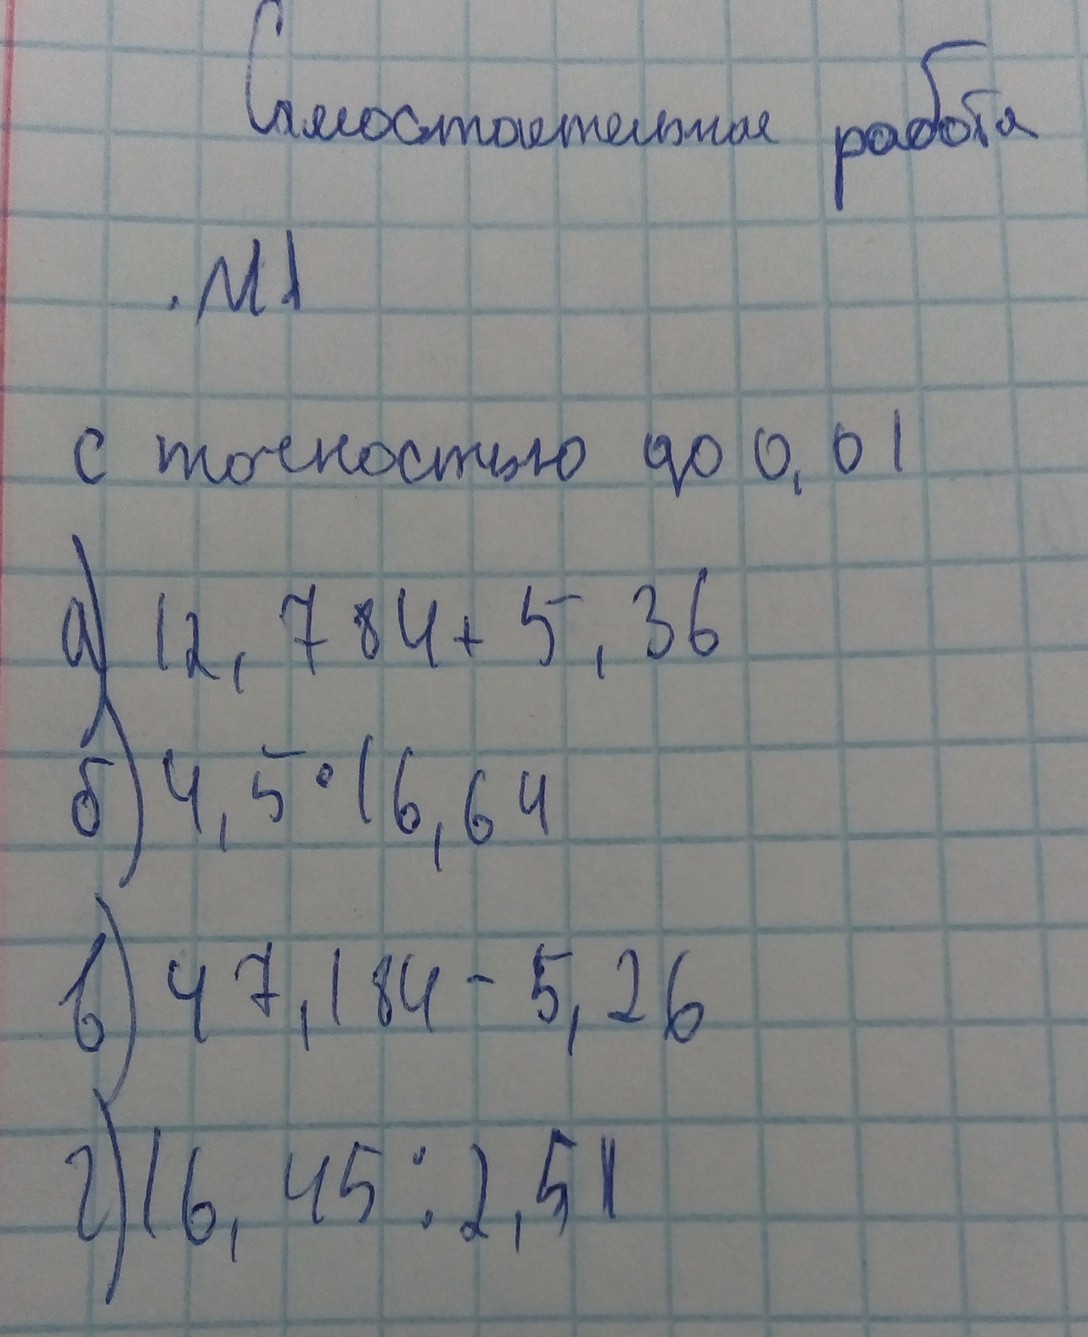 Самостоятельная работа
№1
с точностью до 0,01
а) 12,784 + 5,36
б) 4,5 · 16,64
в) 47,184 - 5,26
г) 16,45 : 2,51